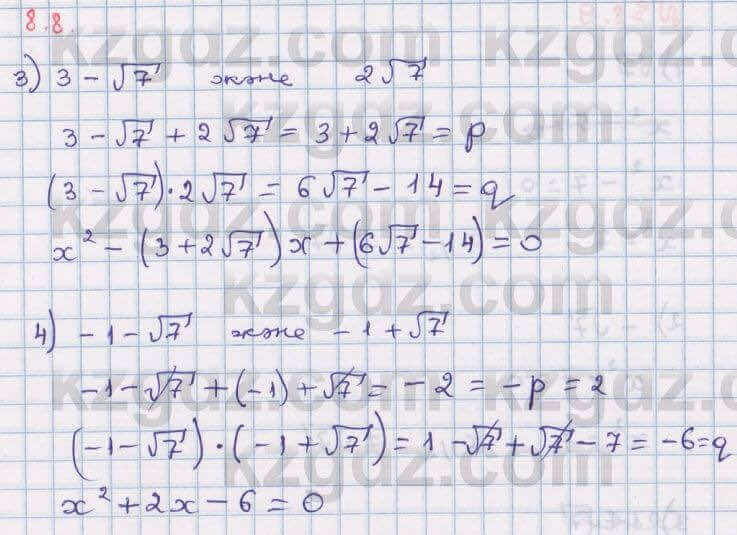 8.8.
3) 3 - √7 және 2√7
3 - √7 + 2√7 = 3 + 2√7 = p
(3 - √7) · 2√7 = 6√7 - 14 = q
x² - (3 + 2√7)x + (6√7 - 14) = 0
4) -1 - √7 және -1 + √7
-1 - √7 + (-1) + √7 = -2 = -p = 2
(-1 - √7) · (-1 + √7) = 1 - √7 + √7 - 7 = -6 = q
x² + 2x - 6 = 0
kzgdz.com kzgdz.com
kzgdz.com
kzgdz.com kzgdz.com
kzgdz.com
kzgdz.com kzgdz.com
kzgdz.com